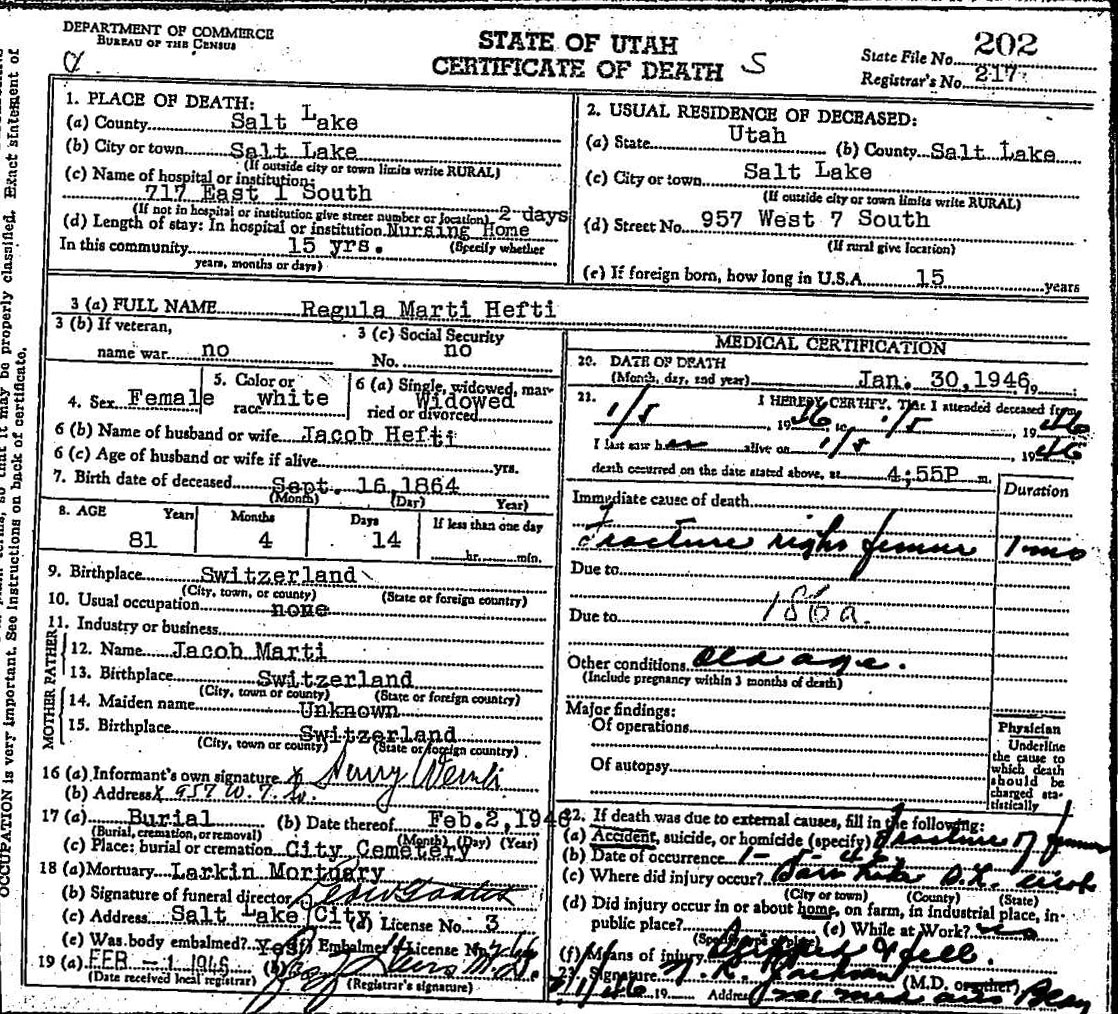 DEPARTMENT OF COMMERCE
BUREAU OF THE CENSUS
STATE OF UTAH
CERTIFICATE OF DEATH S
State File No. 202
Registrar's No. 217
1. PLACE OF DEATH:
(a) County Salt Lake
(b) City or town Salt Lake
(If outside city or town limits write RURAL)
(c) Name of hospital or institution:
717 East 1 South
(If not in hospital or institution give street number or location) 2 days
(d) Length of stay: In hospital or institution Nursing Home
In this community 15 yrs. (Specify whether
years, months or days)
2. USUAL RESIDENCE OF DECEASED:
(a) State Utah (b) County Salt Lake
(c) City or town Salt Lake
(If outside city or town limits write RURAL)
(d) Street No. 957 West 7 South
(If rural give location)
(e) If foreign born, how long in U.S.A. 15 years
3 (a) FULL NAME Regula Marti Hefti
3 (b) If veteran,
name war no
3 (c) Social Security
No. no
4. Sex Female
5. Color or
race white
6 (a) Single, widowed, mar-
ried or divorced Widowed
6 (b) Name of husband or wife Jacob Hefti
6 (c) Age of husband or wife if alive yrs.
7. Birth date of deceased Sept. 16 1864
(Month) (Day) Year)
8. AGE Years Months Days If less than one day
81 4 14 hr. min.
9. Birthplace Switzerland
(City, town, or county) (State or foreign country)
10. Usual occupation none
11. Industry or business
FATHER
12. Name Jacob Marti
13. Birthplace Switzerland
(City, town or county) (State or foreign country)
MOTHER
14. Maiden name Unknown
15. Birthplace Switzerland
(City, town or county) (State or foreign country)
16 (a) Informant's own signature x
(b) Address X 957 W. 7. So.
17 (a) Burial (b) Date thereof Feb.2,1946
(Burial, cremation, or removal) (Month) (Day) (Year)
(c) Place: burial or cremation City Cemetery
18 (a) Mortuary Larkin Mortuary
(b) Signature of funeral director
(c) Address Salt Lake City (d) License No. 3
(e) Was body embalmed? Yes (f) Embalmer's License No.
19 (a) FEB -1 1946 (b)
(Date received local registrar) (Registrar's signature)
MEDICAL CERTIFICATION
20. DATE OF DEATH
(Month, day, and year) Jan. 30,1946, 19
21. I HEREBY CERTIFY, That I attended deceased from
1/5, 1946 to 1/5, 1946
I last saw her alive on 1/5, 1946
death occurred on the date stated above, at 4:55P m.
Duration
Immediate cause of death
Fracture right femur 1 mo
Due to
186a.
Due to
Other conditions Old age.
(Include pregnancy within 3 months of death)
Major findings:
Of operations
Of autopsy
Physician
Underline
the cause to
which death
should be
charged sta-
tistically
22. If death was due to external causes, fill in the following:
(a) Accident, suicide, or homicide (specify) fracture of femur
(b) Date of occurrence 1-5-46
(c) Where did injury occur?
(City or town) (County) (State)
(d) Did injury occur in or about home, on farm, in industrial place, in
public place? (e) While at Work?
(Specify type of place)
(f) Means of injury Slipped & fell.
23. Signature (M.D. or other)
2/1/46 19 Address
OCCUPATION is very important. See instructions on back of certificate.
so that it may be properly classified. Exact statement of